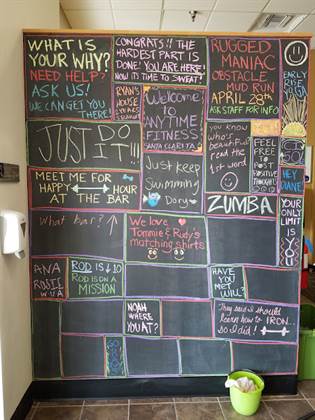 WHAT IS
YOUR WHY?
NEED HELP?
ASK US!
WE CAN GET YOU
THERE!
CONGRATS!! THE
HARDEST PART IS
DONE! YOU ARE HERE!
NOW ITS TIME TO SWEAT!
RUGGED
MANIAC
OBSTACLE
MUD RUN
APRIL 28th
ASK STAFF FOR INFO
EARLY
RISE
RYAN'S
HOUSE
OF
Welcome
to
ANYTIME
FITNESS!
SANTA CLARITA
JUST DO
IT!!!
you know
who's
beautiful?
read the
1st word
FEEL
FREE
TO
POST
POSITIVE
THOUGHTS
HEY
DIANE!
MEET ME FOR
HAPPY HOUR
AT THE BAR
Just keep
Swimming
Dory
ZUMBA
YOUR
ONLY
LIMIT
IS
YOU
What bar? ↑
We love
Tommie & Rudy's
matching shirts
ANA
ROSIE
ROD IS ↓ 10
ROD IS ON A
MISSION
HAVE
YOU MET
WILL?
NOAH
WHERE
YOU AT?
They said I should
learn how to IRON...
so I did!